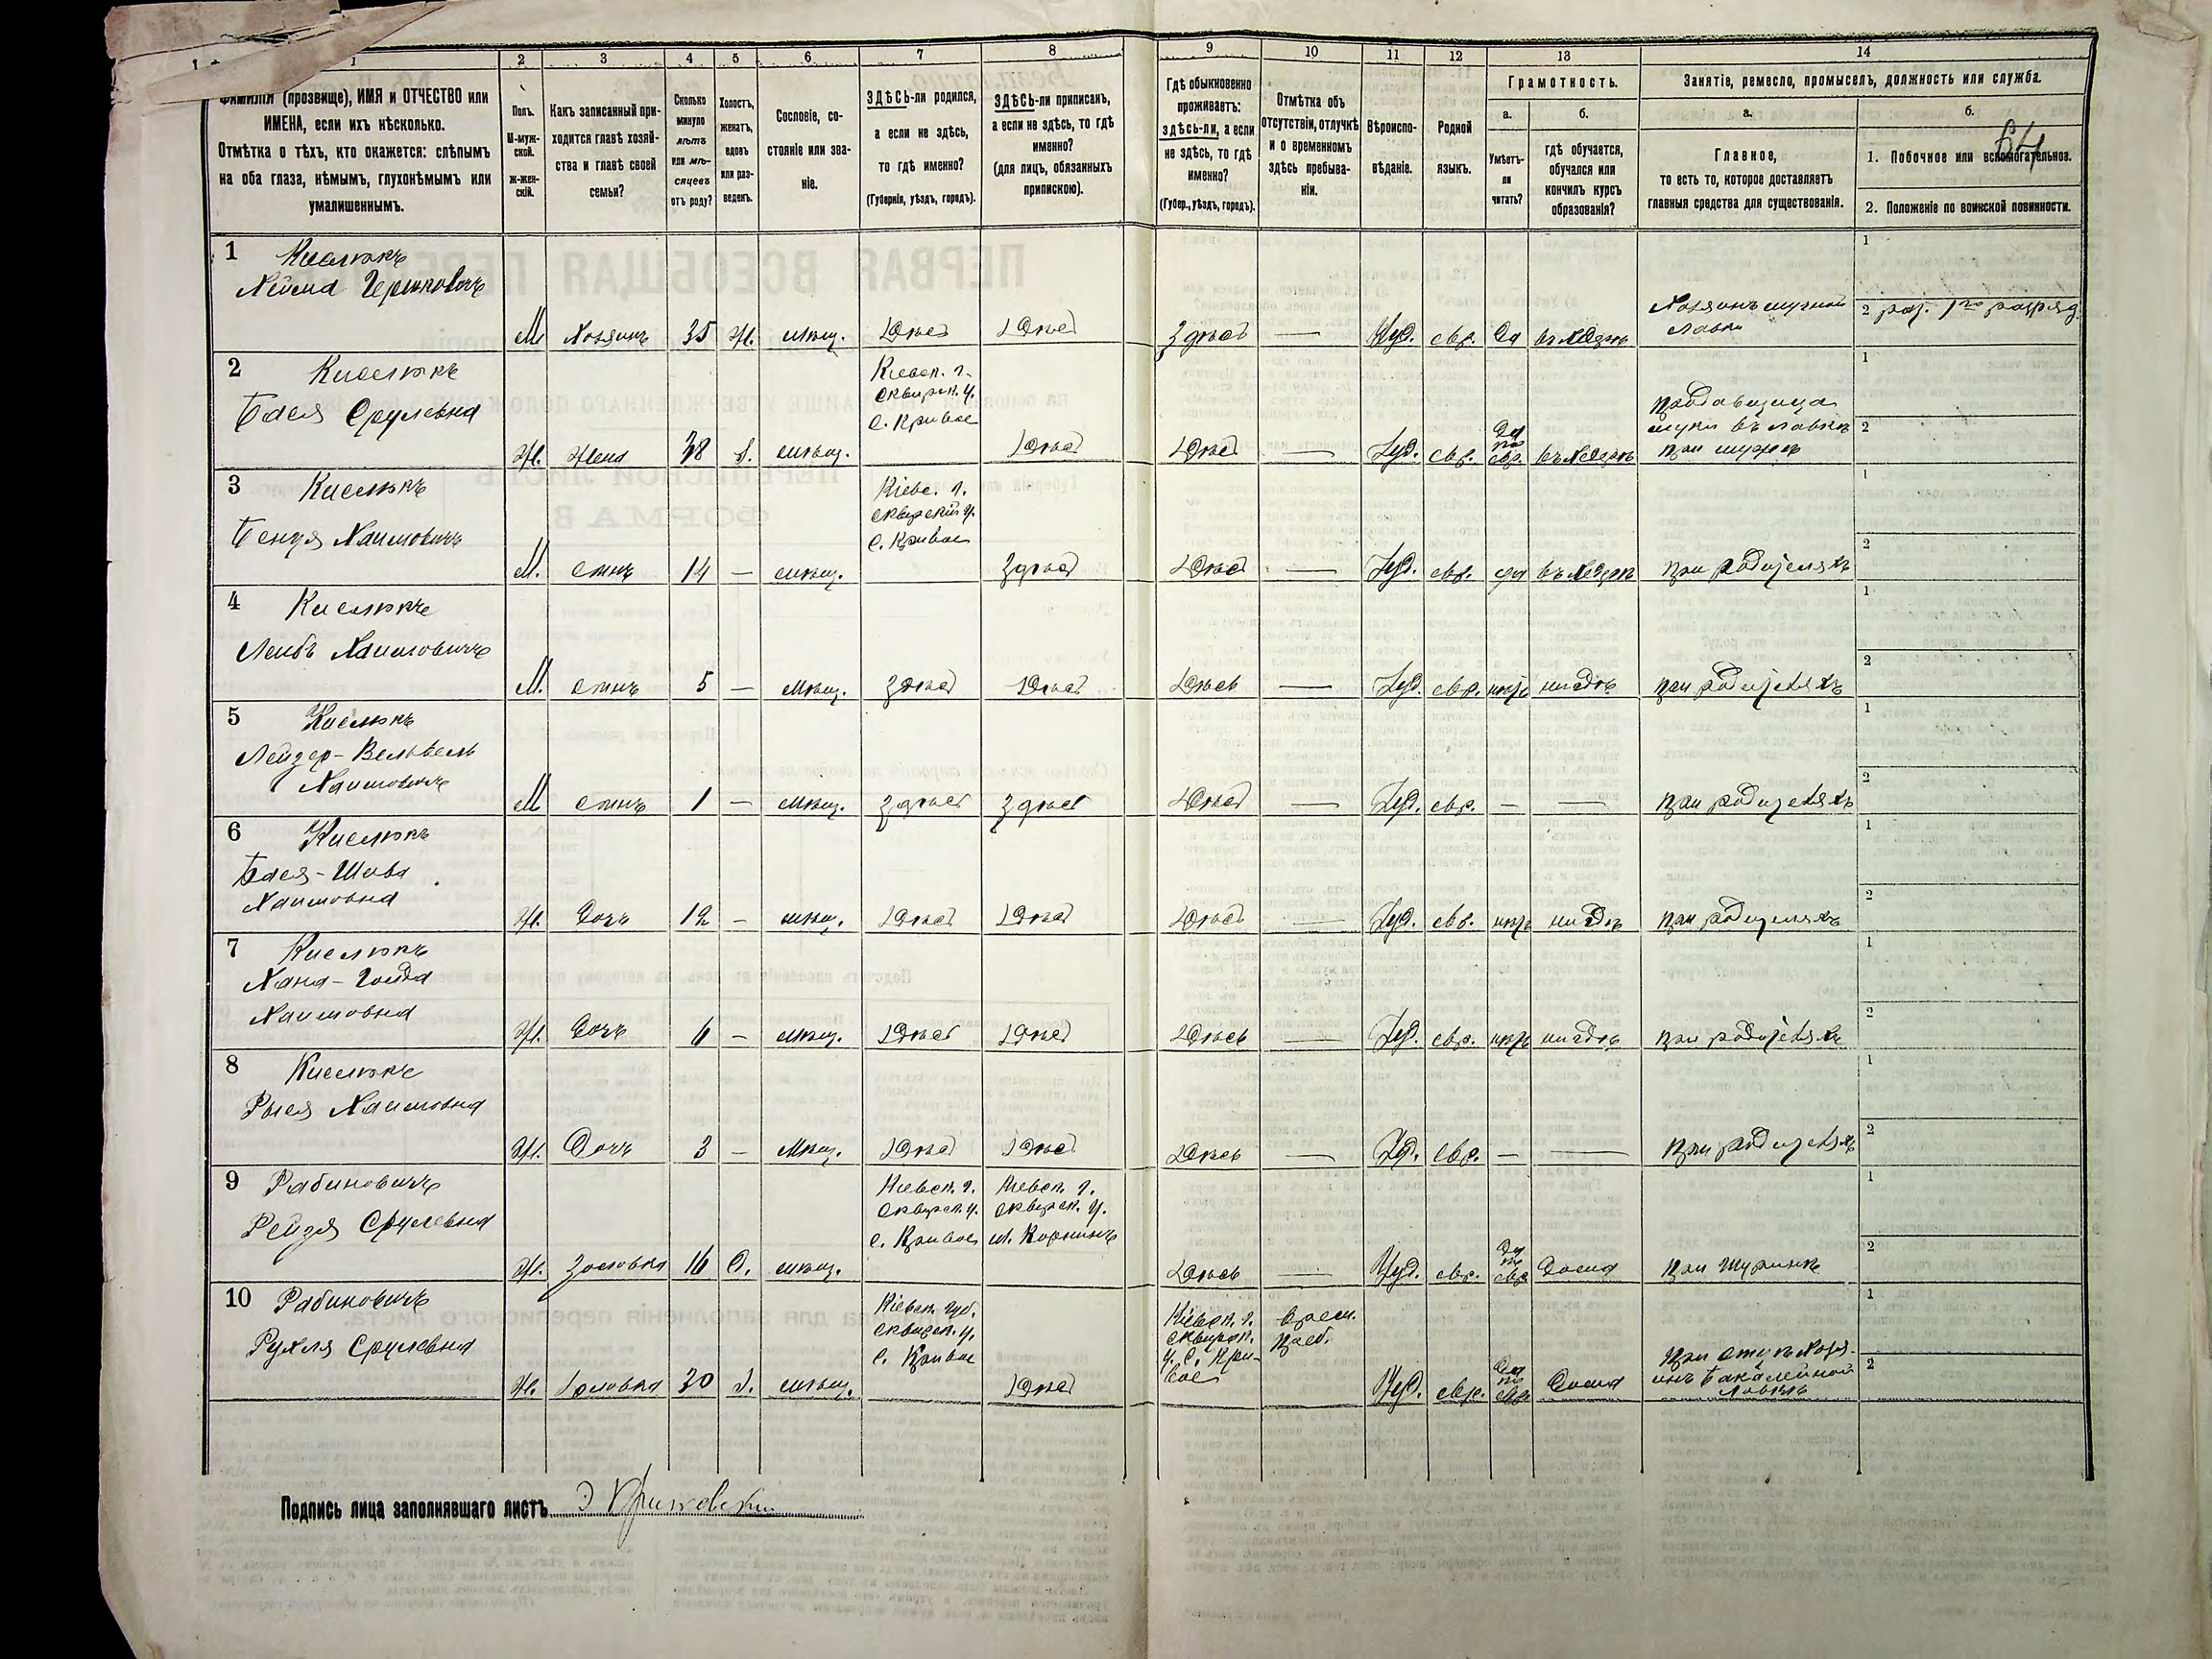 1 2 3 4 5 6 7 8 9 10 11 12 13 14
ФАМИЛІЯ (прозвище), ИМЯ и ОТЧЕСТВО или
ИМЕНА, если ихъ нѣсколько.
Отмѣтка о тѣхъ, кто окажется: слѣпымъ
на оба глаза, нѣмымъ, глухонѣмымъ или
умалишеннымъ.
Полъ.
М-муж-
ской.
Ж-жен-
скій.
Какъ записанный при-
ходится главѣ хозяй-
ства и главѣ своей
семьи?
Сколько
минуло
лѣтъ
или мѣ-
сяцевъ
отъ роду?
Холостъ,
женатъ,
вдовъ
или раз-
веденъ.
Сословіе, со-
стояніе или зва-
ніе.
ЗДѢСЬ-ли родился,
а если не здѣсь,
то гдѣ именно?
(Губернія, уѣздъ, городъ).
ЗДѢСЬ-ли приписанъ,
а если не здѣсь, то гдѣ
именно?
(для лицъ, обязанныхъ
припискою).
Гдѣ обыкновенно
проживаетъ:
здѣсь-ли, а если
не здѣсь, то гдѣ
именно?
(Губер., уѣздъ, городъ).
Отмѣтка объ
отсутствіи, отлучкѣ
и о временномъ
здѣсь пребыва-
ніи.
Вѣроиспо-
вѣданіе.
Родной
языкъ.
Грамотность.
а.
Умѣетъ-
ли
читать?
б.
гдѣ обучается,
обучался или
кончилъ курсъ
образованія?
Занятіе, ремесло, промыселъ, должность или служба.
а.
Главное,
то есть то, которое доставляетъ
главныя средства для существованія.
б.
64
1. Побочное или вспомогательное.
2. Положеніе по воинской повинности.
1 Кислюкъ
Хаимъ Гершковичъ
М Хозяинъ 35 Ж. мѣщ. Здѣсь Здѣсь Здѣсь — Іуд. евр. да въ хедерѣ
Хозяинъ мучной
лавки
1
2 рат. 1го разряд.
2 Кислюкъ
Бася Срулевна
Ж. Жена 38 З. мѣщ.
Кіевск. г.
Сквирск. у.
с. Кривое
Здѣсь Здѣсь — Іуд. евр.
да
по
евр. въ хедерѣ
продавщица
муки въ лавкѣ
при мужѣ
1
2
3 Кислюкъ
Бенця Хаимовичъ
М. сынъ 14 — мѣщ.
Кіевс. г.
Сквирскій у.
с. Кривое
Здѣсь Здѣсь — Іуд. евр. да въ хедерѣ при родителяхъ
1
2
4 Кислюкъ
Лейбъ Хаимовичъ
М. сынъ 5 — мѣщ. Здѣсь Здѣсь Здѣсь — Іуд. евр. нѣтъ нигдѣ при родителяхъ
1
2
5 Кислюкъ
Лейзер-Вельвель
Хаимовичъ
М сынъ 1 — мѣщ. Здѣсь Здѣсь Здѣсь — Іуд. евр. — — при родителяхъ
1
2
6 Кислюкъ
Бася-Шива
Хаимовна
Ж. Дочь 12 — мѣщ. Здѣсь Здѣсь Здѣсь — Іуд. евр. нѣтъ нигдѣ при родителяхъ
1
2
7 Кислюкъ
Хана-Гольда
Хаимовна
Ж. Дочь 6 — мѣщ. Здѣсь Здѣсь Здѣсь — Іуд. евр. нѣтъ нигдѣ при родителяхъ
1
2
8 Кислюкъ
Рыся Хаимовна
Ж. Дочь 3 — мѣщ. Здѣсь Здѣсь Здѣсь — Іуд. евр. — — при родителяхъ
1
2
9 Рабиновичъ
Рейзя Срулевна
Ж. Золовка 16 Д. мѣщ.
Кіевск. г.
Сквирск. у.
с. Кривое
Кіевск. г.
Сквирск. у.
м. Корнинъ
Здѣсь — Іуд. евр.
да
по
евр. дома при шуринѣ
1
2
10 Рабиновичъ
Рухля Срулевна
Ж. Золовка 30 З. мѣщ.
Кіевск. губ.
Сквирск. у.
с. Кривое
Здѣсь
Кіевск. г.
Сквирск.
у. с. Кри-
вое
врем.
преб.
Іуд. евр.
да
по
евр. дома
при отцѣ хозя-
инѣ бакалейной
лавки
1
2
Подпись лица заполнявшаго листъ